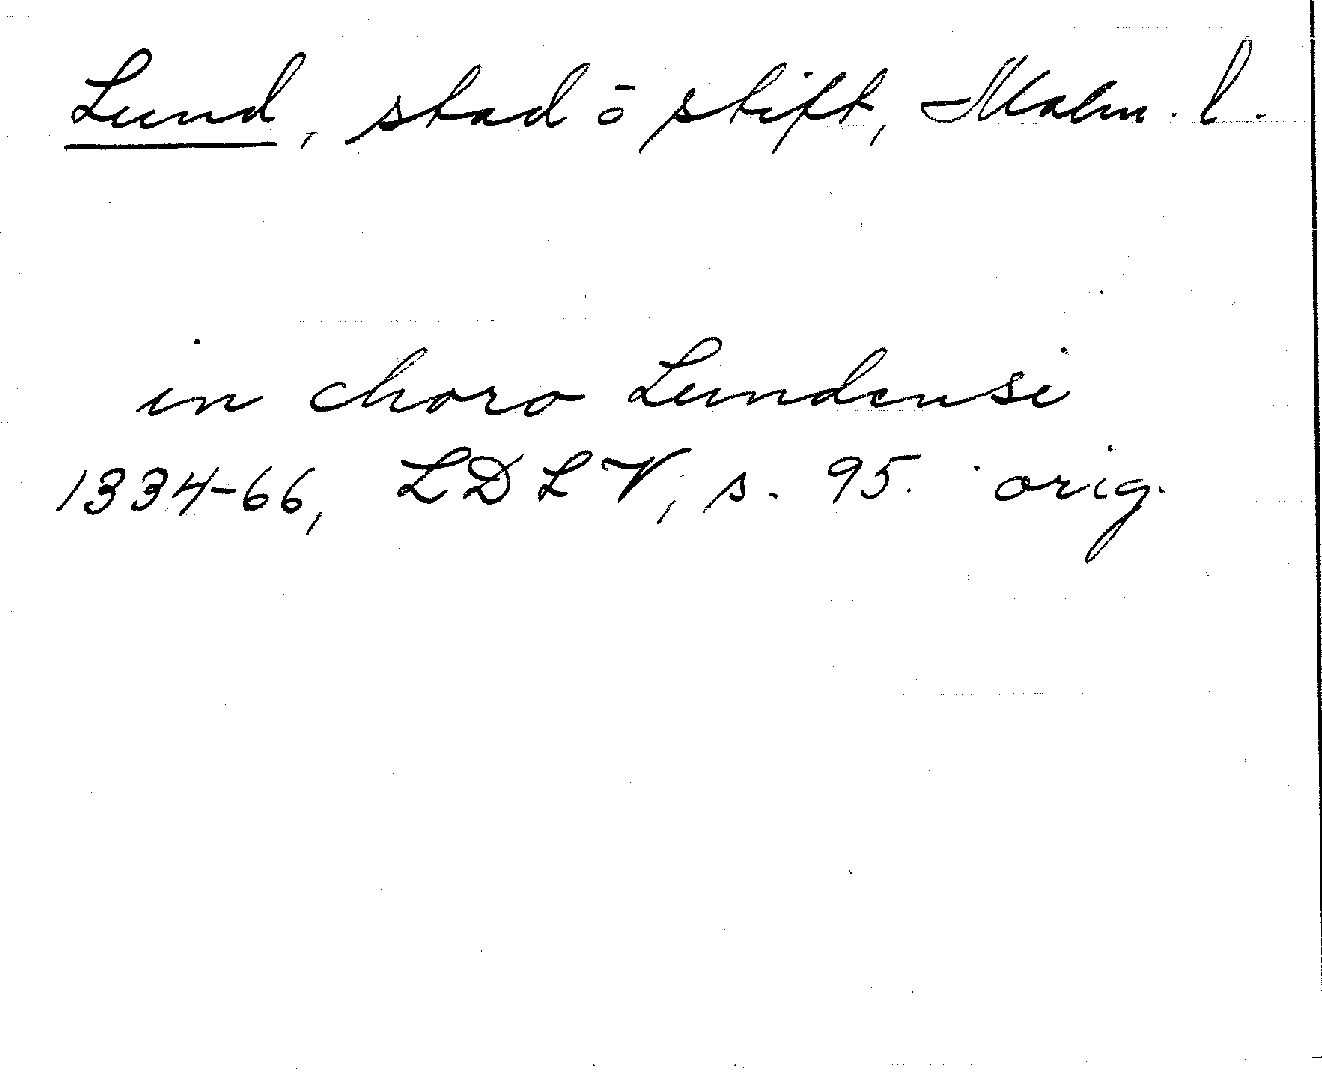 Lund, stad ō stift, Malm. l.
in choro Lundensi
1334-66, LDLV, s. 95. orig.